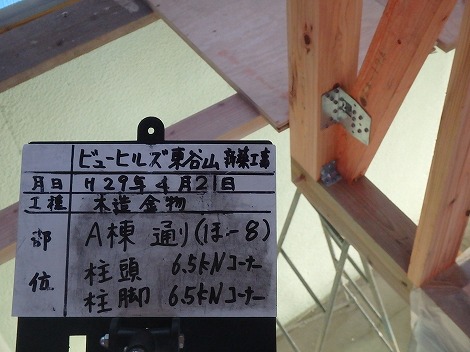 ビューヒルズ東谷山 新築工事
月日 H29年4月21日
工種 木造金物
部位 A棟 通り(ほ-8)
柱頭 6.5kNコーナー
柱脚 6.5kNコーナー